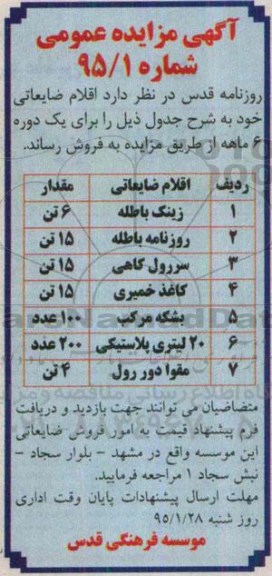 آگهی مزایده عمومی
شماره ۹۵/۱
روزنامه قدس در نظر دارد اقلام ضایعاتی
خود به شرح جدول ذیل را برای یک دوره
۶ ماهه از طریق مزایده به فروش رساند.
ردیف اقلام ضایعاتی مقدار
۱ زینک باطله ۶ تن
۲ روزنامه باطله ۱۵ تن
۳ سررول کاهی ۱۵ تن
۴ کاغذ خمیری ۱۵ تن
۵ بشکه مرکب ۱۰۰ عدد
۶ ۲۰ لیتری پلاستیکی ۲۰۰ عدد
۷ مقوا دور رول ۴ تن
متقاضیان می توانند جهت بازدید و دریافت
فرم پیشنهاد قیمت به امور فروش ضایعاتی
این موسسه واقع در مشهد - بلوار سجاد -
نبش سجاد ۱ مراجعه فرمایید.
مهلت ارسال پیشنهادات پایان وقت اداری
روز شنبه ۹۵/۱/۲۸
موسسه فرهنگی قدس